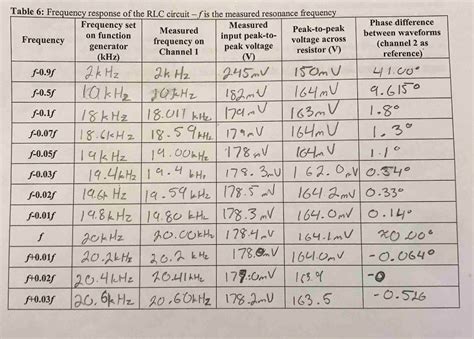 Table 6: Frequency response of the RLC circuit – f is the measured resonance frequency
Frequency | Frequency set on function generator (kHz) | Measured frequency on Channel 1 | Measured input peak-to-peak voltage (V) | Peak-to-peak voltage across resistor (V) | Phase difference between waveforms (channel 2 as reference)
f-0.9f | 2kHz | 2kHz | 245mV | 150mV | 41.00°
f-0.5f | 10kHz | 10kHz | 182mV | 164mV | 9.615°
f-0.1f | 18kHz | 18.011 kHz | 179mV | 163mV | 1.8°
f-0.07f | 18.6kHz | 18.59kHz | 179mV | 164mV | 1.3°
f-0.05f | 19kHz | 19.00kHz | 178mV | 164mV | 1.1°
f-0.03f | 19.4kHz | 19.4 kHz | 178.3mV | 162.0mV | 0.54°
f-0.02f | 19.6kHz | 19.59kHz | 178.5mV | 164.2mV | 0.33°
f-0.01f | 19.8kHz | 19.80 kHz | 178.3mV | 164.0mV | 0.14°
f | 20kHz | 20.00kHz | 178.4mV | 164.1mV | ≈0.00°
f+0.01f | 20.2kHz | 20.2 kHz | 178.0mV | 164.0mV | -0.064°
f+0.02f | 20.4kHz | 20.41kHz | 177.0mV | 163.9 | -0
f+0.03f | 20.6kHz | 20.60kHz | 178.2mV | 163.5 | -0.526